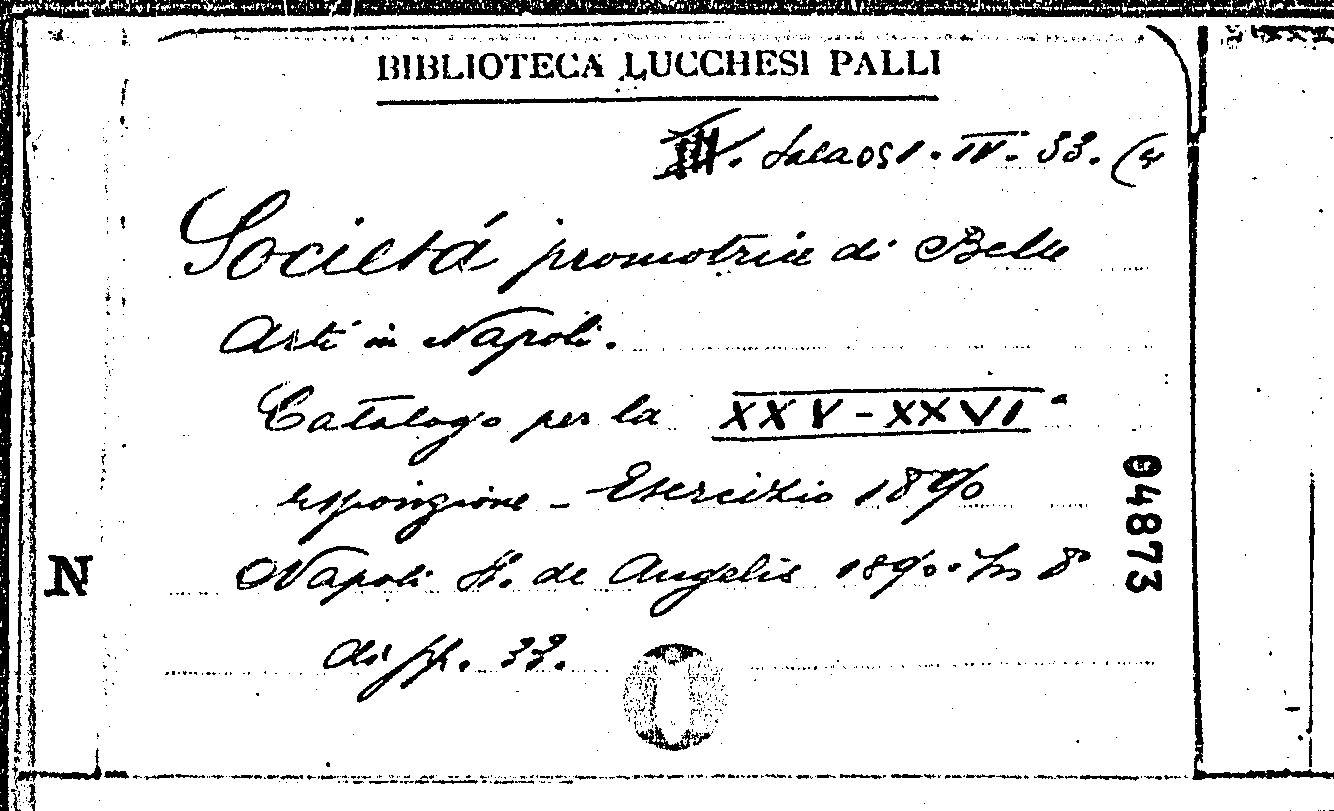 BIBLIOTECA LUCCHESI PALLI
III. Sala OS 1. IV. 33. (4
Societá promotrice di Belle
Arti in Napoli.
Catalogo per la XXV-XXVIª
esposizione - Esercizio 1890
Napoli F. de Angelis 1890. In 8°
di pp. 33.
N
04873